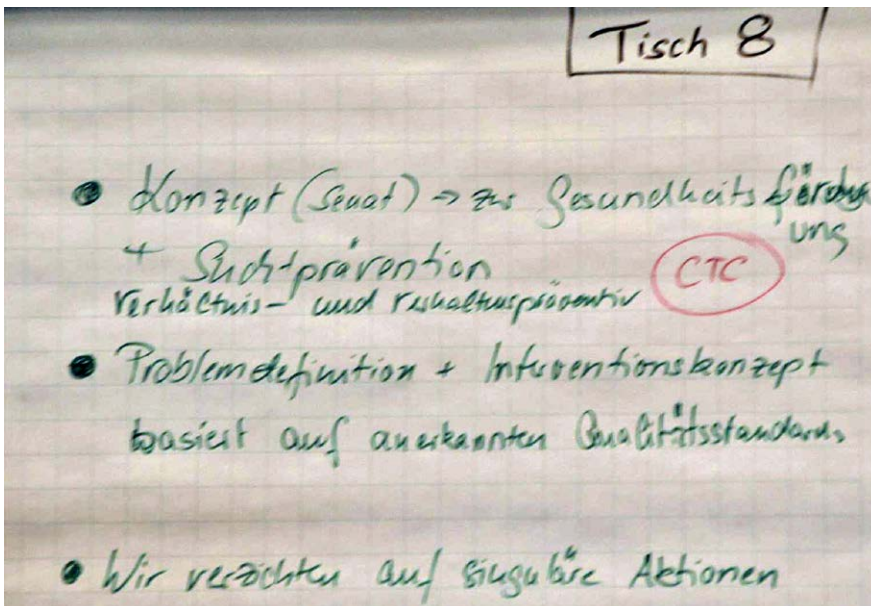 Tisch 8
• Konzept (Senat) → zur Gesundheitsförder
ung
+ Suchtprävention
CTC
Verhältnis- und verhaltenspräventiv
• Problemdefinition + Interventionskonzept
basiert auf anerkannten Qualitätsstandards
• Wir verzichten auf singuläre Aktionen